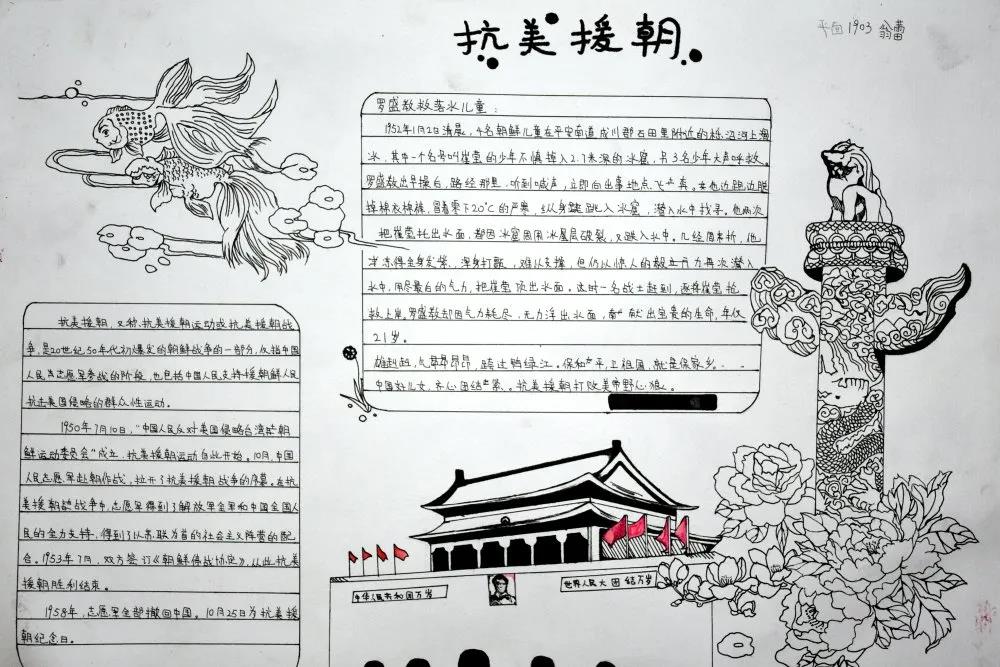 抗美援朝
平面1903 翁蕾
罗盛教救落水儿童:
1952年1月2日清晨,4名朝鲜儿童在平安南道成川郡石田里附近的栎沼河上溜
冰,其中一个名叫崔莹的少年不慎掉入2.7米深的冰窟,另3名少年大声呼救。
罗盛教出早操白,路经那里,听到喊声,立即向出事地点飞奔。去他边跑边脱
掉棉衣棉裤,冒着零下20℃的严寒,纵身跳入冰窟,潜入水中找寻。他两次
把崔莹托出水面,都因冰窟周围冰层破裂,又跌入水中。几经周折,他
才冻得全身发紫、浑身打颤,难以支撑,但仍以惊人的毅力再次潜入
水中,用尽最白的气力,把崔莹顶出水面。这时一名战士赶到,逐将崔莹抢
救上岸。罗盛教却因气力耗尽,无力浮出水面,献出宝贵的生命,年仅
21岁。
雄赳赳,气昂昂,跨过鸭绿江。保和平卫祖国,就是保家乡。
中国好儿女,齐心团结紧。抗美援朝打败美帝野心狼。
抗美援朝,又称抗美援朝运动或抗美援朝战
争,是20世纪50年代初爆发的朝鲜战争的一部分,仅指中国
人民志愿军参战的阶段,也包括中国人民支持援朝鲜人民
抗击美国侵略的群众性运动。
1950年7月10日,“中国人民反对美国侵略台湾朝
鲜运动委员会”成立,抗美援朝运动自此开始。10月,中国
人民志愿军赴朝作战,拉开了抗美援朝战争的序幕。在抗
美援朝战争中,志愿军得到了解放军全军和中国全国人
民的全力支持,得到了以苏联为首的社会主义阵营的配
合。1953年7月,双方签订《朝鲜停战协定》,从此抗美
援朝胜利结束。
1958年,志愿军全部撤回中国。10月25日为抗美援
朝纪念日。
中华人民共和国万岁
世界人民大团结万岁